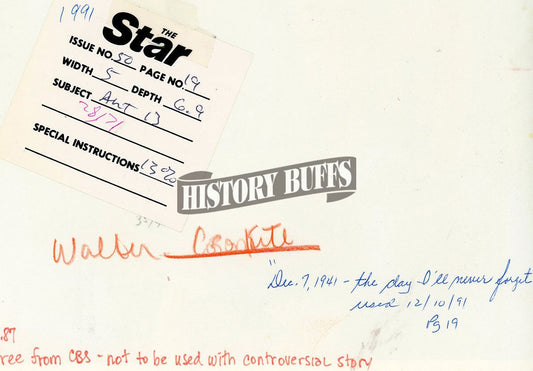 1991
THE
Star
ISSUE NO. 50 PAGE NO. 19
WIDTH 5 DEPTH 6.9
SUBJECT Art 13
28/71
SPECIAL INSTRUCTIONS 130%
HISTORY BUFFS
Walter Cronkite
"Dec. 7, 1941 - the day I'll never forget
used 12/10/91
Pg 19
.87
ree from CBS - not to be used with controversial story